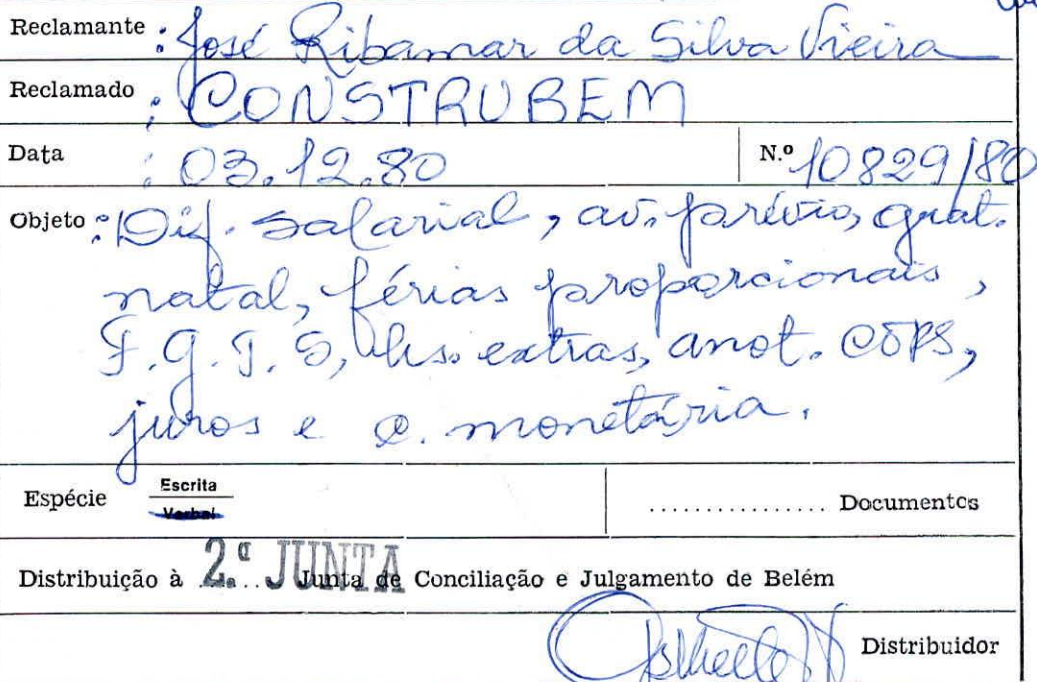 Reclamante : José Ribamar da Silva Vieira
Reclamado : CONSTRUBEM
Data : 03.12.80 N.º 10829/80
Objeto : Dif. salarial, av. prévio, grat.
natal, férias proporcionais,
F.G.T.S, hs. extras, anot. CTPS,
juros e c. monetária.
Espécie Escrita
Verbal
............... Documentos
Distribuição à 2.ª JUNTA Junta de Conciliação e Julgamento de Belém
Distribuidor